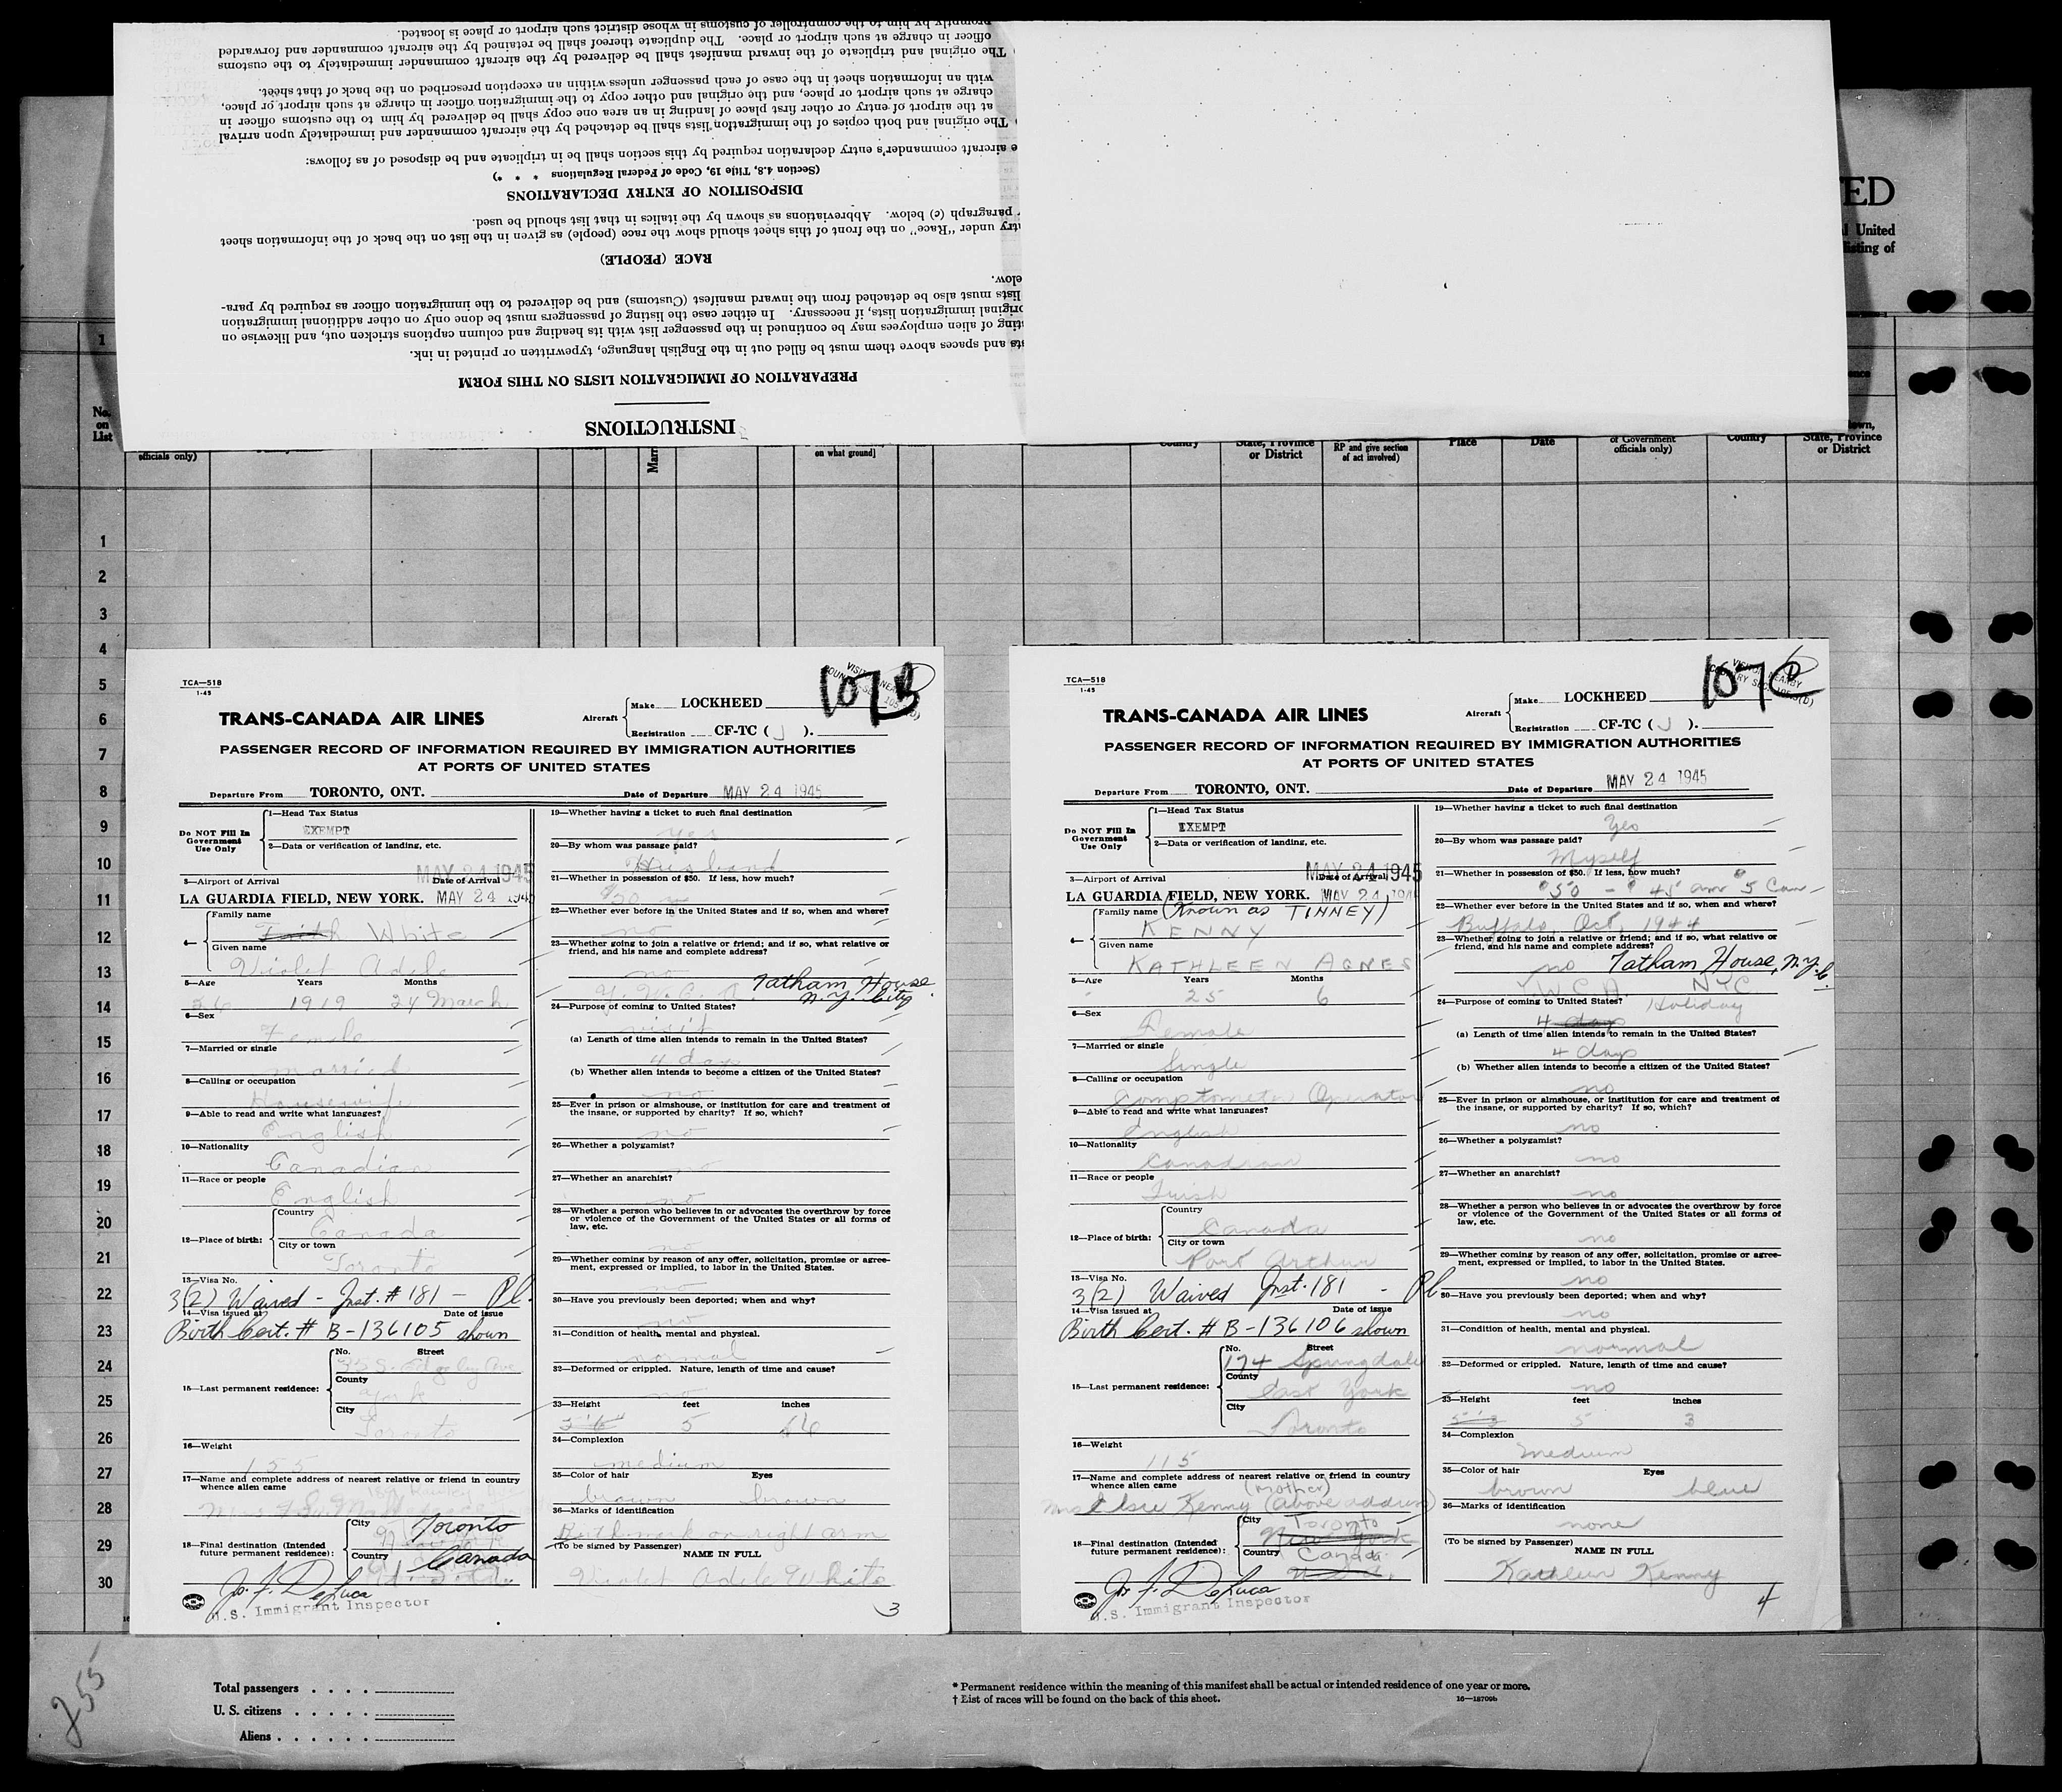 INSTRUCTIONS
PREPARATION OF IMMIGRATION LISTS ON THIS FORM
and spaces above them must be filled out in the English language, typewritten or printed in ink.
of alien employees may be continued in the passenger list with its heading and column captions stricken out, and likewise on
original immigration lists, if necessary. In either case the listing of passengers must be done only on other additional immigration
lists must also be detached from the inward manifest (Customs) and be delivered to the immigration officer as required by para-
RACE (PEOPLE)
under "Race" on the front of this sheet should show the race (people) as given in the list on the back of the information sheet
paragraph (c) below. Abbreviations as shown by the italics in that list should be used.
DISPOSITION OF ENTRY DECLARATIONS
(Section 4.8, Title 19, Code of Federal Regulations * * *)
aircraft commander's entry declaration required by this section shall be in triplicate and be disposed of as follows:
) The original and both copies of the immigration lists shall be detached by the aircraft commander and immediately upon arrival
at the airport of entry or other first place of landing in an area one copy shall be delivered by him to the customs officer in
charge at such airport or place, and the original and other copy to the immigration officer in charge at such airport or place,
with an information sheet in the case of each passenger unless within an exception prescribed on the back of that sheet.
) The original and triplicate of the inward manifest shall be delivered by the aircraft commander immediately to the customs
officer in charge at such airport or place. The duplicate thereof shall be retained by the aircraft commander and forwarded
promptly by him to the comptroller of customs in whose district such airport or place is located.
ED
United
listing of
1
No. on List
officials only)
on what ground]
State, Province or District
RP and give section of act involved)
Place
Date
of Government officials only)
Country
State, Province or District
1
2
3
4
5
6
7
8
9
10
11
12
13
14
15
16
17
18
19
20
21
22
23
24
25
26
27
28
29
30
TCA—518
1-45
107B
TRANS-CANADA AIR LINES
Aircraft
Make LOCKHEED
Registration CF-TC ( J ).
PASSENGER RECORD OF INFORMATION REQUIRED BY IMMIGRATION AUTHORITIES
AT PORTS OF UNITED STATES
Departure From TORONTO, ONT. Date of Departure MAY 24 1945
Do NOT Fill In Government Use Only
1—Head Tax Status
EXEMPT
2—Data or verification of landing, etc.
MAY 24 1945
3—Airport of Arrival Date of Arrival
LA GUARDIA FIELD, NEW YORK. MAY 24 1945
4—
Family name
White
Given name
Violet Adele
5—Age Years Months
26 1919 24 March
6—Sex
Female
7—Married or single
married
8—Calling or occupation
Housewife
9—Able to read and write what languages?
English
10—Nationality
Canadian
11—Race or people
English
12—Place of birth:
Country
Canada
City or town
Toronto
13—Visa No.
3(2) Waived - Inst. # 181 -
14—Visa issued at Date of issue
Birth Cert. # B-136105 shown
15—Last permanent residence:
No. Street
County
York
City
Toronto
16—Weight
155
17—Name and complete address of nearest relative or friend in country
whence alien came
18—Final destination (Intended
future permanent residence):
City
Toronto
Country
Canada
Jo. F. DeLuca
U.S. Immigrant Inspector
19—Whether having a ticket to such final destination
yes
20—By whom was passage paid?
Husband
21—Whether in possession of $50. If less, how much?
22—Whether ever before in the United States and if so, when and where?
no
23—Whether going to join a relative or friend; and if so, what relative or
friend, and his name and complete address?
no Tatham House
Y.W.C.A. N.Y. City
24—Purpose of coming to United States?
visit
(a) Length of time alien intends to remain in the United States?
4 days
(b) Whether alien intends to become a citizen of the United States?
no
25—Ever in prison or almshouse, or institution for care and treatment of
the insane, or supported by charity? If so, which?
no
26—Whether a polygamist?
no
27—Whether an anarchist?
no
28—Whether a person who believes in or advocates the overthrow by force
or violence of the Government of the United States or all forms of
law, etc.
no
29—Whether coming by reason of any offer, solicitation, promise or agree-
ment, expressed or implied, to labor in the United States.
no
30—Have you previously been deported; when and why?
no
31—Condition of health, mental and physical.
normal
32—Deformed or crippled. Nature, length of time and cause?
no
33—Height feet inches
5
34—Complexion
medium
35—Color of hair Eyes
brown brown
36—Marks of identification
Birthmark on right arm
(To be signed by Passenger)
NAME IN FULL
Violet Adele White
3
TCA—518
1-45
107C
TRANS-CANADA AIR LINES
Aircraft
Make LOCKHEED
Registration CF-TC ( J ).
PASSENGER RECORD OF INFORMATION REQUIRED BY IMMIGRATION AUTHORITIES
AT PORTS OF UNITED STATES
Departure From TORONTO, ONT. Date of Departure MAY 24 1945
Do NOT Fill In Government Use Only
1—Head Tax Status
EXEMPT
2—Data or verification of landing, etc.
MAY 24 1945
3—Airport of Arrival Date of Arrival
LA GUARDIA FIELD, NEW YORK. MAY 24 1945
4—
Family name (Known as TINNEY)
KENNY
Given name
KATHLEEN AGNES
5—Age Years Months
25 6
6—Sex
Female
7—Married or single
Single
8—Calling or occupation
Comptometer Operator
9—Able to read and write what languages?
English
10—Nationality
Canadian
11—Race or people
Irish
12—Place of birth:
Country
Canada
City or town
Port Arthur
13—Visa No.
3(2) Waived Inst. 181 -
14—Visa issued at Date of issue
Birth Cert. # B-136106 shown
15—Last permanent residence:
No. Street
174 Springdale
County
East York
City
Toronto
16—Weight
115
17—Name and complete address of nearest relative or friend in country
whence alien came (mother)
Mrs Elsie Kenny (above address)
18—Final destination (Intended
future permanent residence):
City
Toronto
New York
Country
Canada
U.S.A.
Jo. F. DeLuca
U.S. Immigrant Inspector
19—Whether having a ticket to such final destination
Yes
20—By whom was passage paid?
Myself
21—Whether in possession of $50. If less, how much?
$50 - $45 am $5 Can
22—Whether ever before in the United States and if so, when and where?
Buffalo, Oct, 1944
23—Whether going to join a relative or friend; and if so, what relative or
friend, and his name and complete address?
no Tatham House, N.Y.C.
W.C.A. NYC
24—Purpose of coming to United States? Holiday
4 days
(a) Length of time alien intends to remain in the United States?
4 days
(b) Whether alien intends to become a citizen of the United States?
no
25—Ever in prison or almshouse, or institution for care and treatment of
the insane, or supported by charity? If so, which?
no
26—Whether a polygamist?
no
27—Whether an anarchist?
no
28—Whether a person who believes in or advocates the overthrow by force
or violence of the Government of the United States or all forms of
law, etc.
no
29—Whether coming by reason of any offer, solicitation, promise or agree-
ment, expressed or implied, to labor in the United States.
no
30—Have you previously been deported; when and why?
no
31—Condition of health, mental and physical.
normal
32—Deformed or crippled. Nature, length of time and cause?
no
33—Height feet inches
5'3 5 3
34—Complexion
medium
35—Color of hair Eyes
brown blue
36—Marks of identification
none
(To be signed by Passenger)
NAME IN FULL
Kathleen Kenny
4
255
Total passengers . . . .
U. S. citizens . . . . .
Aliens . . . . . .
* Permanent residence within the meaning of this manifest shall be actual or intended residence of one year or more.
† List of races will be found on the back of this sheet. 16—18709b